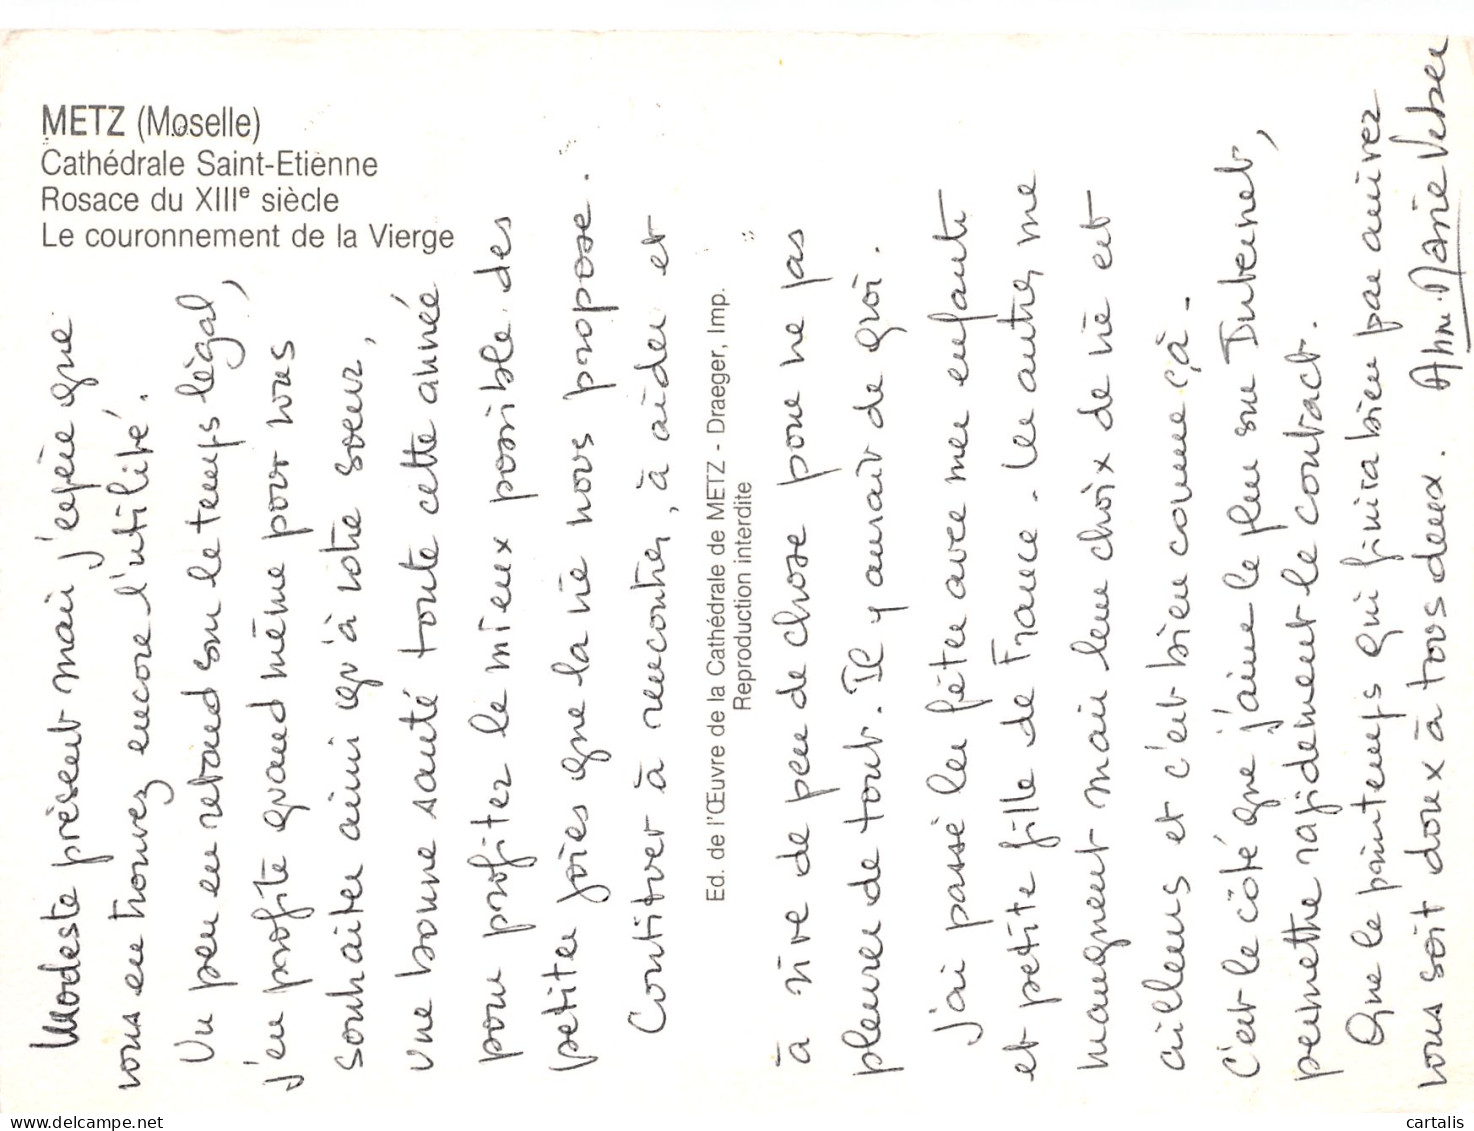 METZ (Moselle)
Cathédrale Saint-Etienne
Rosace du XIIIe siècle
Le couronnement de la Vierge
Modeste présent mais j'espère que
vous en trouvez encore l'utilité.
Un peu en retard sur le temps légal,
j'en profite quand même pour vous
souhaiter ainsi qu'à votre soeur,
une bonne santé toute cette année
pour profiter le mieux possible des
petites joies que la vie nous propose.
Continuer à rencontrer, à aider et
Ed. de l'Œuvre de la Cathédrale de METZ - Draeger, Imp.
Reproduction interdite
à vivre de peu de chose pour ne pas
pleurer de tout. Il y aurait de quoi.
J'ai passé les fêtes avec mes enfants
et petite fille de France. Les autres me
manquent mais leur choix de vie est
ailleurs et c'est bien comme çà -
C'est le côté que j'aime le plus sur Internet,
permettre rapidement le contact.
Que le printemps qui finira bien par arriver
vous soit doux à tous deux. Anne-Marie Veber
cartalis